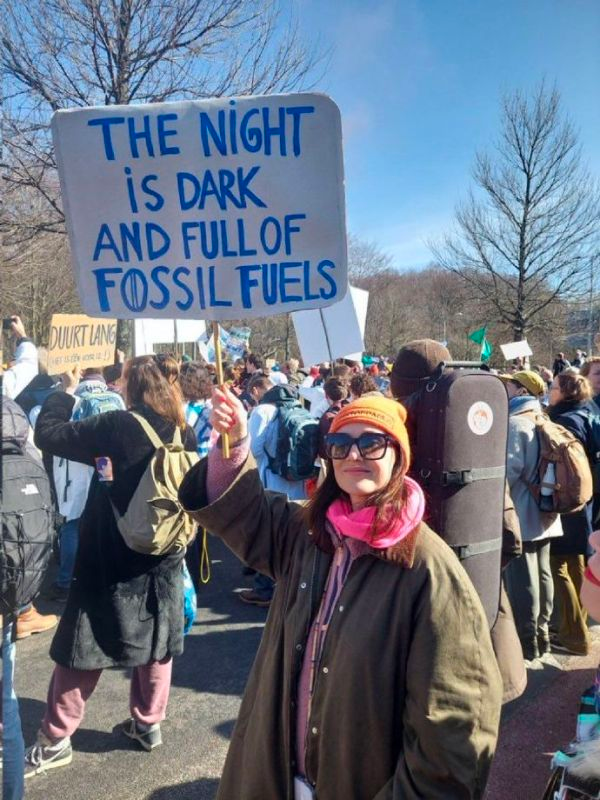 THE NIGHT
is DARK
AND FULL OF
FOSSIL FUELS
DUURT LANG